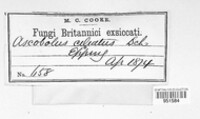 M. C. COOKE.
Fungi Britannici exsiccati.
Ascobolus ciliatus Sch.
Epping
Ap. 1874
No. 658